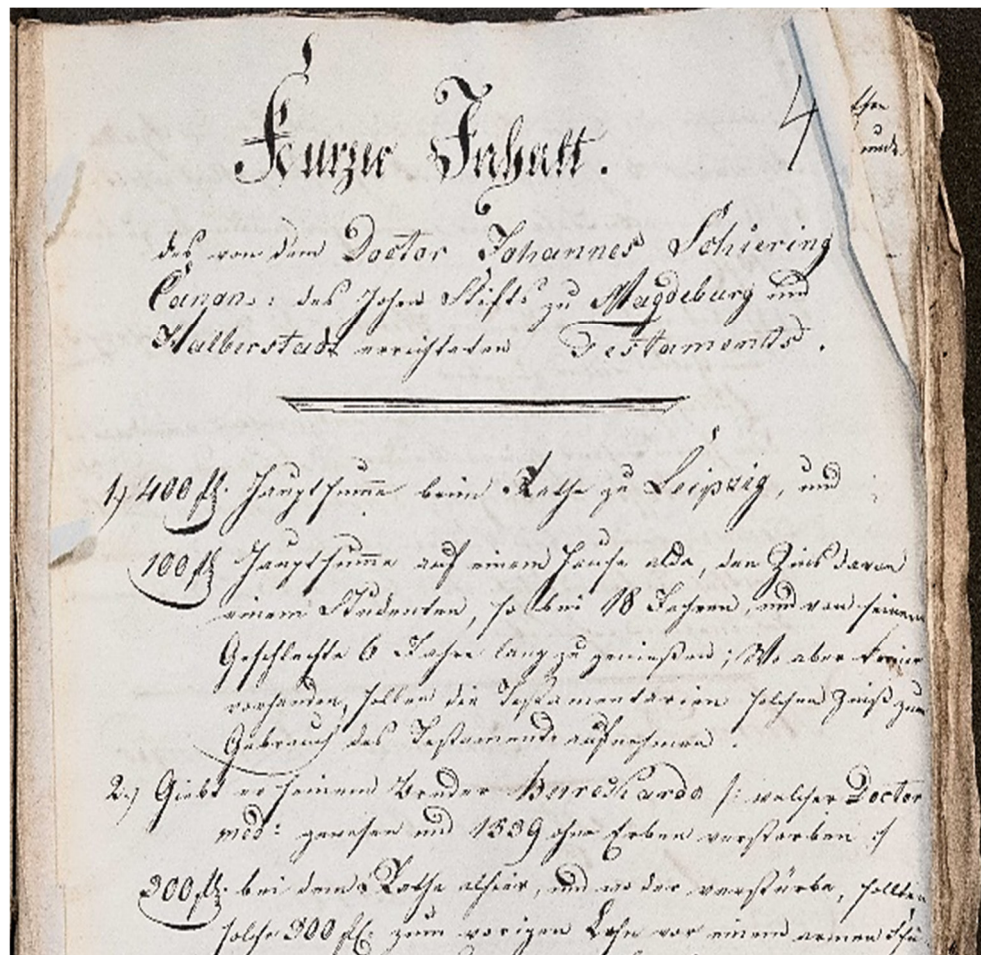 4
Kurzer Inhalt.
des von dem Doctor Johannes Schiering
Canon: des hohen Stifts zu Magdeburg und
Halberstadt errichteten Testaments.
1.) 400 fl. Hauptsum̅e beim Rathe zu Leipzig, und
100 fl Hauptsum̅e auf einem Hause alda, den Zins davon
einem Studenten, so bei 18 Jahren, und von seinem
Geschlechte 6 Jahre lang zu genießen; Wo aber keiner
vorhanden, sollen die Testamentarien solchen Zinß zum
Gebrauch des Testaments aufnehmen.
2.) Giebt er seinem Bruder /: welcher Doctor
med: gewesen und 1539 ohne Erben verstorben :/
300 fl. bei dem Rathe alhier, und wo der verstürbe, sollten
solche 300 fl. zum vorigen Lehn vor einem armen Schü-